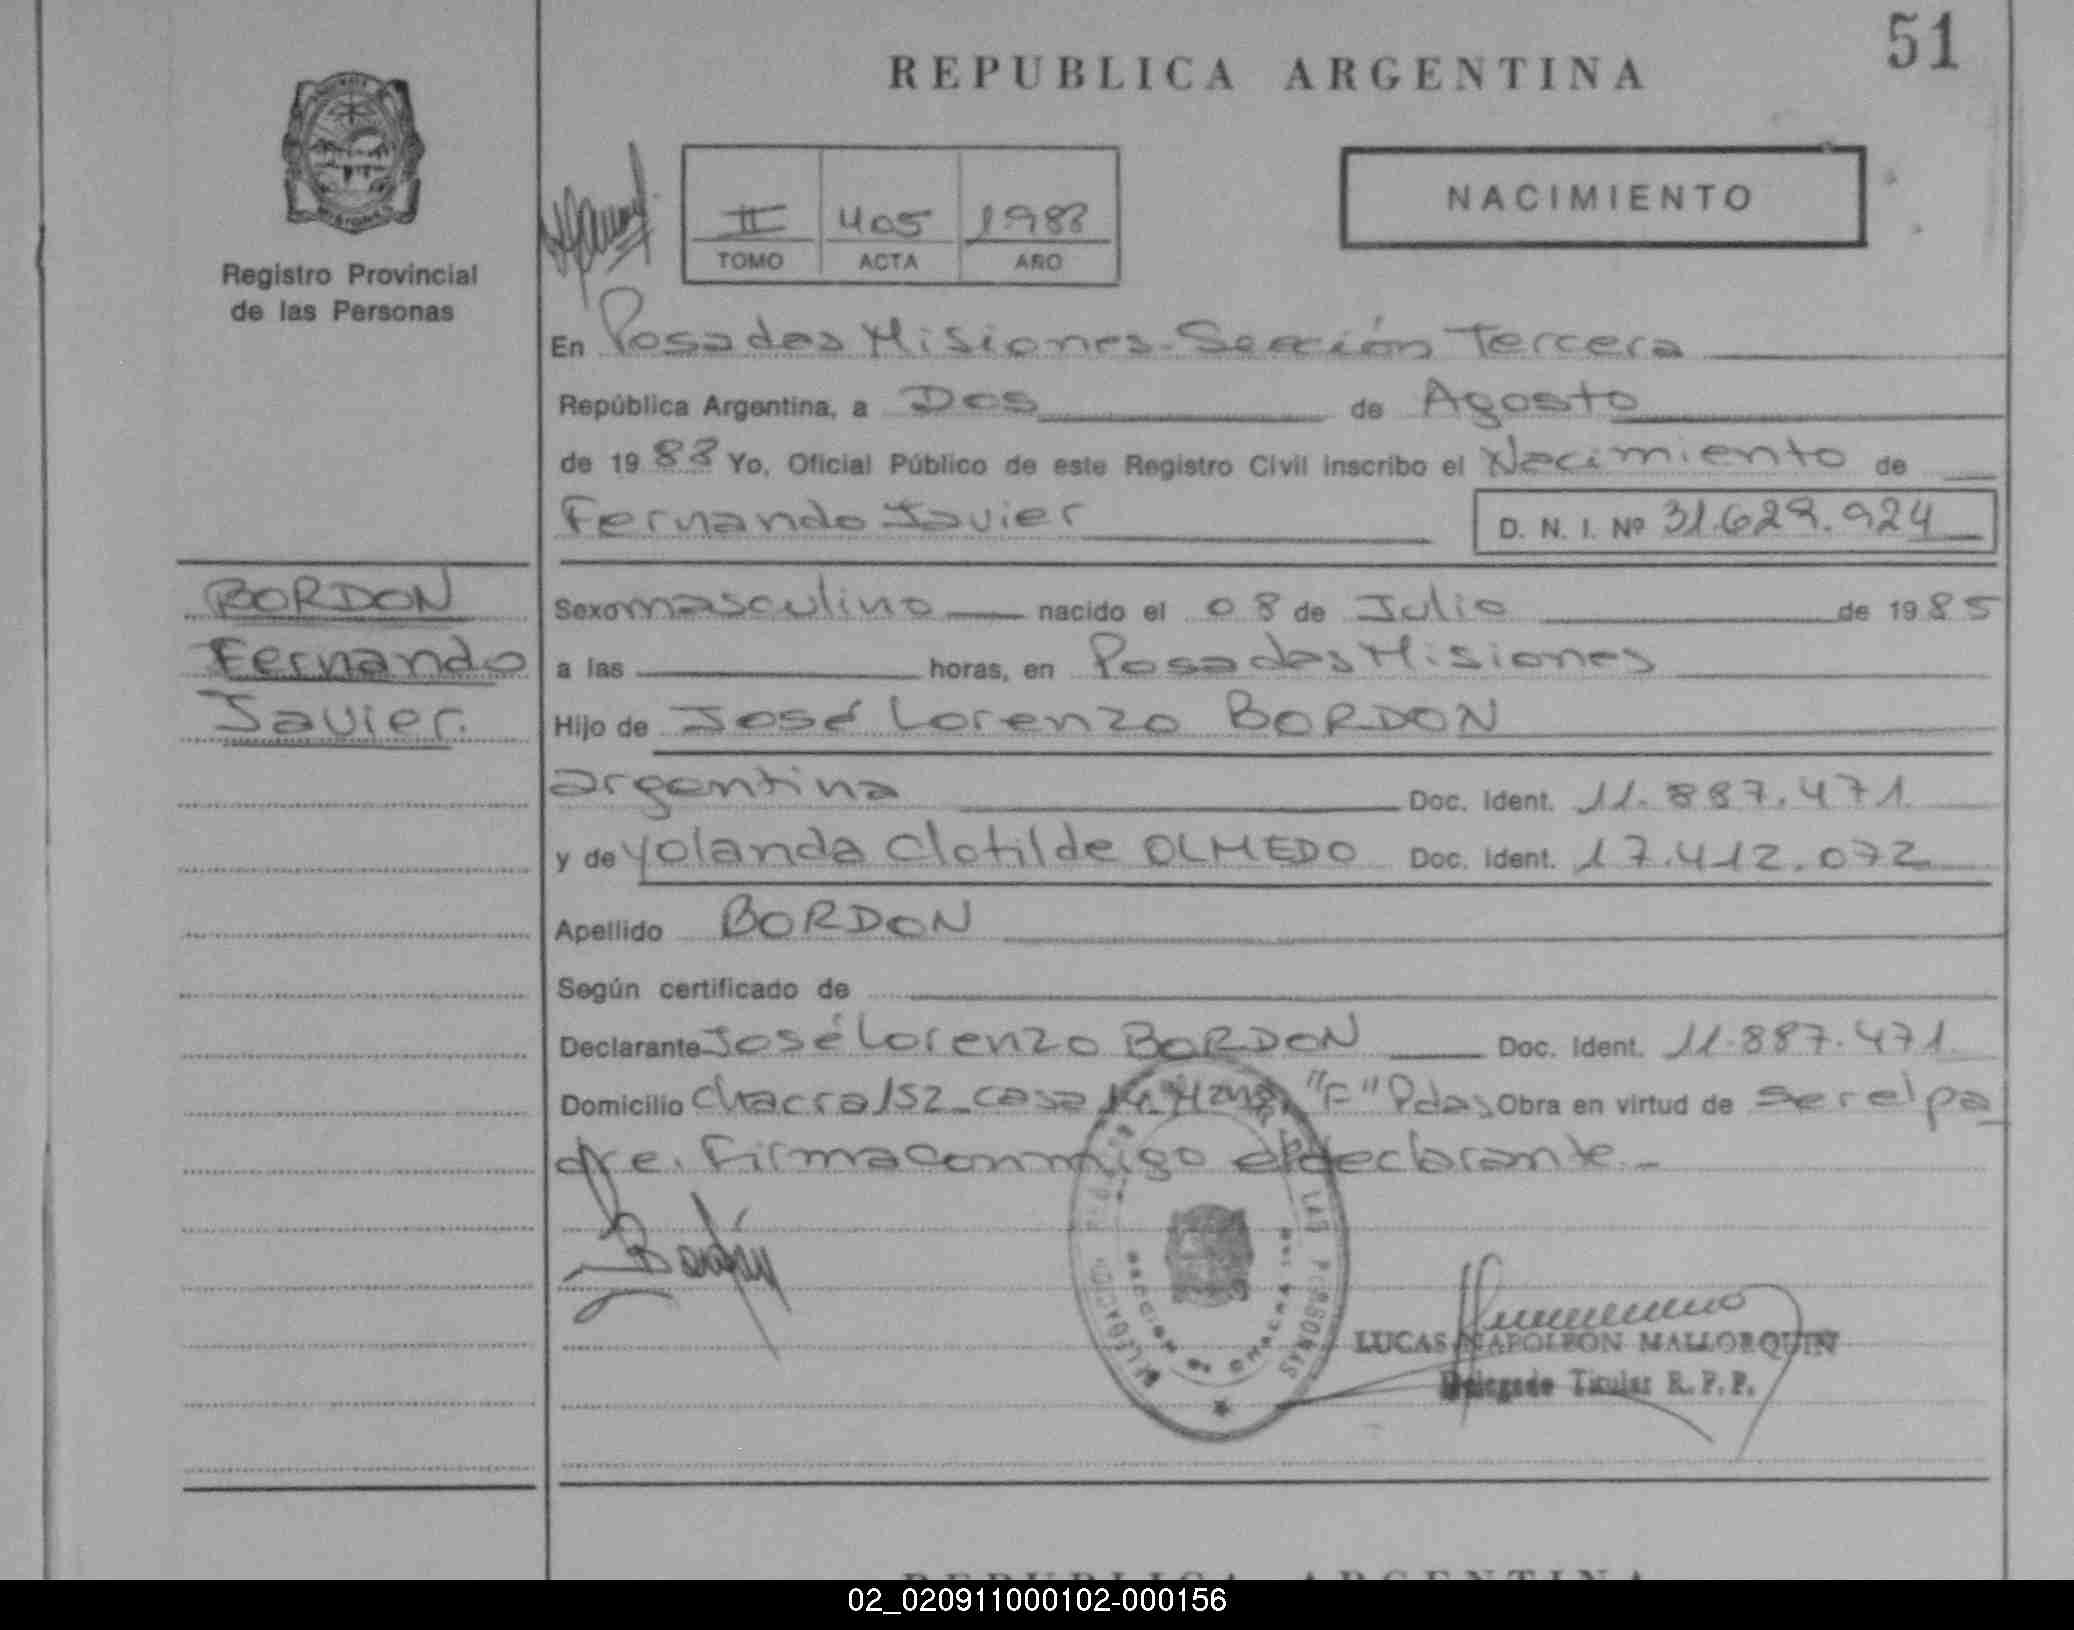 51
REPUBLICA ARGENTINA
NACIMIENTO
II 405 1988
TOMO ACTA AÑO
Registro Provincial
de las Personas
En Posadas Misiones. Sección Tercera
República Argentina, a Dos de Agosto
de 1988 Yo, Oficial Público de este Registro Civil inscribo el Nacimiento de
Fernando Javier D. N. I. Nº 31.629.924
BORDON
Fernando
Javier.
Sexo masculino nacido el 08 de Julio de 1985
a las horas, en Posadas Misiones
Hijo de José Lorenzo BORDON
argentina Doc. Ident. 11.887.471
y de Yolanda Clotilde OLMEDO Doc. Ident. 17.412.072
Apellido BORDON
Según certificado de
Declarante José Lorenzo BORDON Doc. Ident. 11.887.471
Domicilio Chacra 152 casa "F" Pdas Obra en virtud de ser el pa
dre. Firma conmigo el declarante.
LUCAS NAPOLEON MALLORQUIN
Delegado Titular R. P. P.
REPUBLICA ARGENTINA
02_020911000102-000156